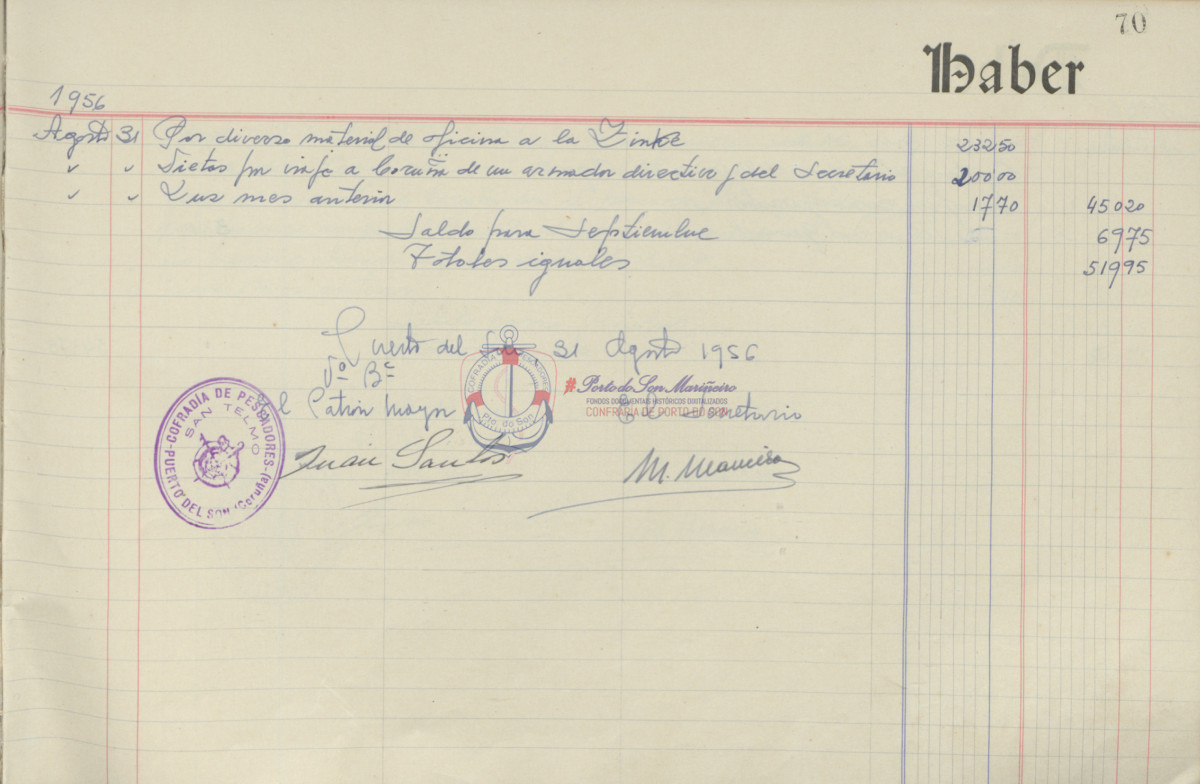 70
Haber
1956
Agosto 31 Por diverso material de oficina a la Zinke 232 50
" " Dietas por viaje a Coruña de un armador directivo y del Secretario 200 00
" " Luz mes anterior 17 70 450 20
Saldo para Septiembre 69 75
Totales iguales 519 95
Puerto del Son, 31 Agosto 1956
Vº Bº
El Patrón Mayor El Secretario
Juan Santos M. Maneiro
COFRADIA DE PESCADORES
SAN TELMO
PUERTO DEL SON (Coruña)
COFRADÍA PESCADORES
Pto. do Son
#Porto do Son Mariñeiro
FONDOS DOCUMENTAIS HISTÓRICOS DIGITALIZADOS
CONFRARÍA DE PORTO DO SON